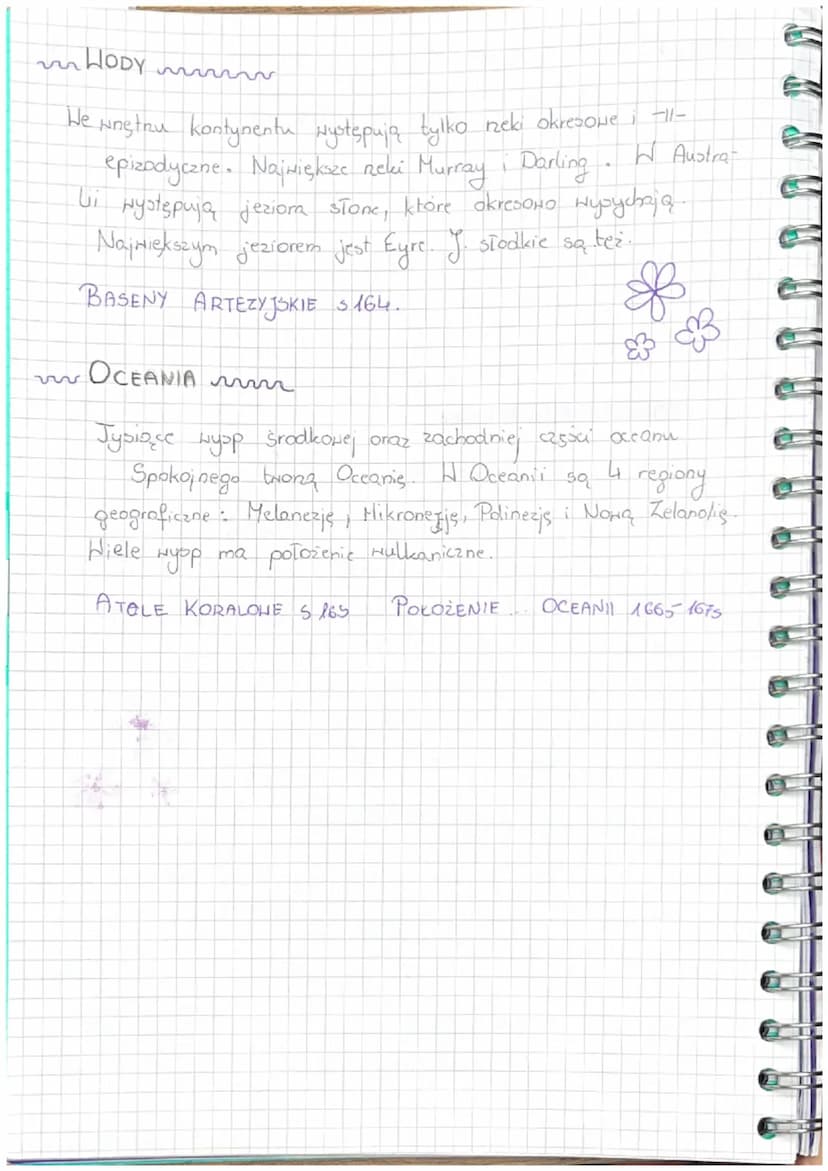 WODY
We wnętrzu kontynentu występują tylko rzeki okresowe i -||-
epizodyczne. Największe rzeki Murray i Darling. W Austra-
lii występują jeziora słone, które okresowo wysychają.
Największym jeziorem jest Eyre. J. słodkie są też.
BASENY ARTEZYJSKIE s 164.
OCEANIA
Tysiące wysp środkowej oraz zachodniej części oceanu
Spokojnego tworzą Oceanię. W Oceanii są 4 regiony
geograficzne: Melanezję, Mikronezję, Polinezję i Nową Zelandię.
Wiele wysp ma położenie wulkaniczne.
ATOLE KORALOWE s 165 POŁOŻENIE... OCEANII 166s-167s